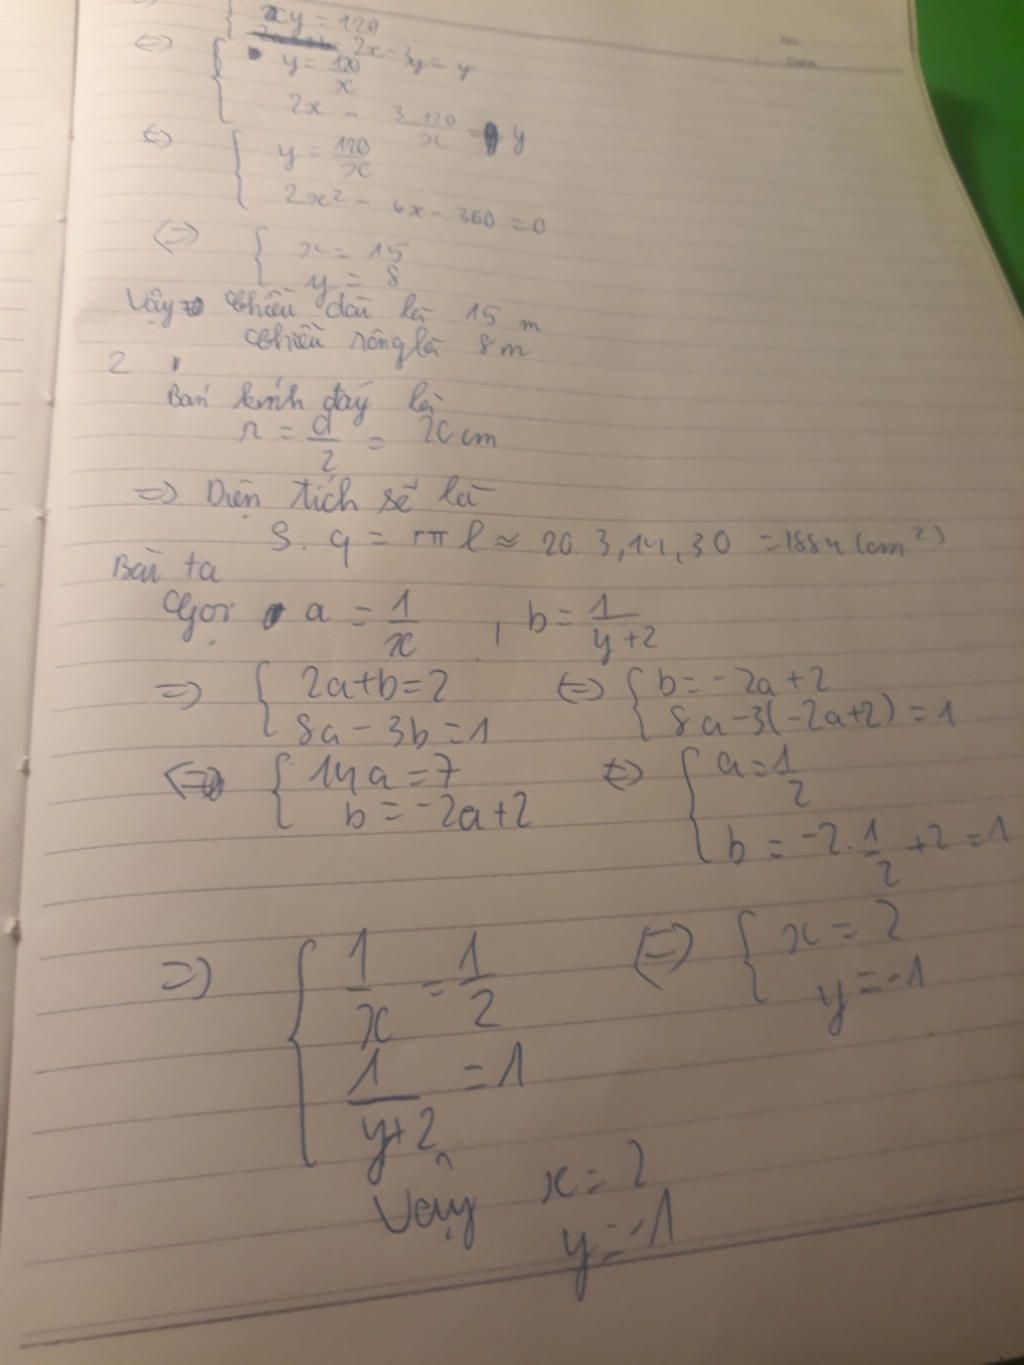 xy = 120
⇔ 2x - 3y = y
y = 120/x
2x - 3.120/x = y
⇔ { y = 120/x
2x² - 6x - 360 = 0
⇔ { x = 15
y = 8
Vậy chiều dài là 15 m
chiều rộng là 8m
2
Bán kính đáy là
r = d/2 = 20 cm
=> Diện tích sẽ là
S.q = rπl ≈ 20.3,14.30 = 1884 (cm²)
Bài ta
Gọi a = 1/x , b = 1/y+2
=> { 2a+b=2 ⇔ { b=-2a+2
8a-3b=1 8a-3(-2a+2)=1
⇔ { 14a=7 ⇔ { a=1/2
b=-2a+2 b=-2.1/2+2=1
=> { 1/x = 1/2 ⇔ { x=2
1/y+2 = 1 y=-1
Vậy x=2
y=-1